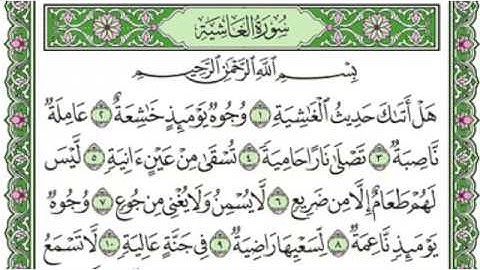 سُورَةُ الْغَاشِيَةِ
بِسْمِ اللَّهِ الرَّحْمَٰنِ الرَّحِيمِ
هَلْ أَتَىٰكَ حَدِيثُ الْغَٰشِيَةِ ١ وُجُوهٌ يَوْمَئِذٍ خَٰشِعَةٌ ٢ عَامِلَةٌ
نَّاصِبَةٌ ٣ تَصْلَىٰ نَارًا حَامِيَةً ٤ تُسْقَىٰ مِنْ عَيْنٍ ءَانِيَةٍ ٥ لَّيْسَ
لَهُمْ طَعَامٌ إِلَّا مِن ضَرِيعٍ ٦ لَّا يُسْمِنُ وَلَا يُغْنِي مِن جُوعٍ ٧ وُجُوهٌ
يَوْمَئِذٍ نَّاعِمَةٌ ٨ لِّسَعْيِهَا رَاضِيَةٌ ٩ فِي جَنَّةٍ عَالِيَةٍ ١٠ لَّا تَسْمَعُ